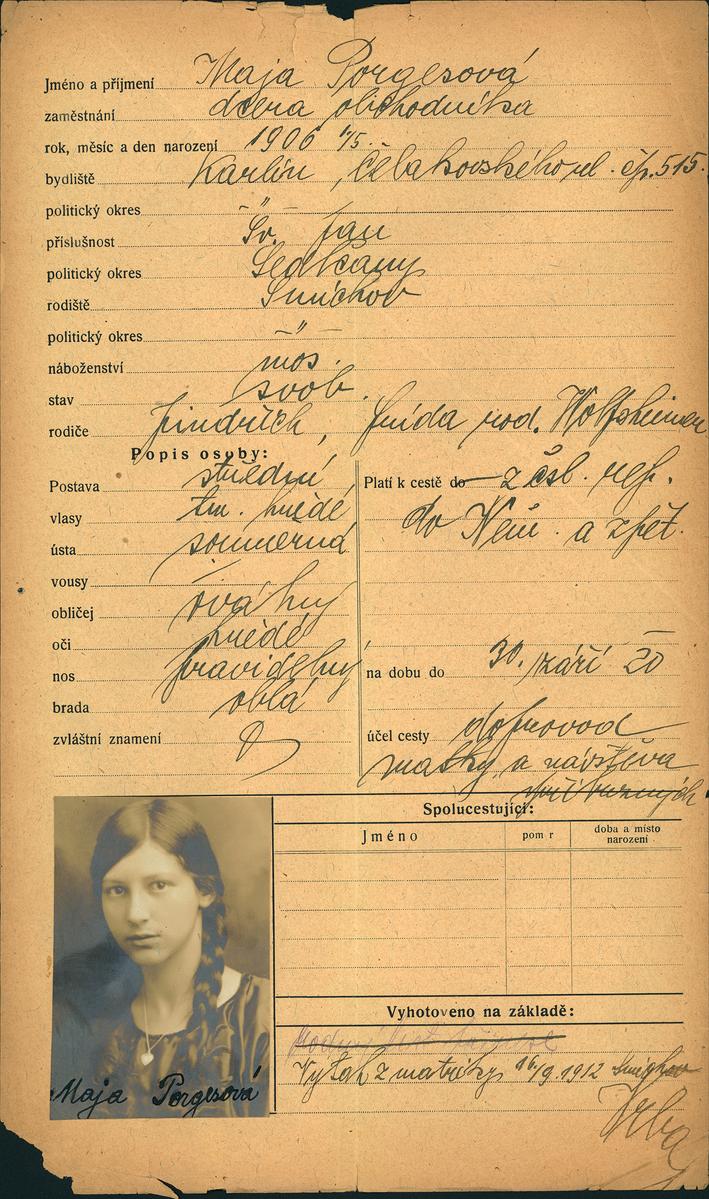 Jméno a příjmení Maja Porgesová
zaměstnání dcera obchodníka
rok, měsíc a den narození 1906
bydliště Karlín, Čelakovského ul. čp. 515.
politický okres -"-
příslušnost Sv. Jan
politický okres Sedlčany
rodiště Smíchov
politický okres -"-
náboženství mos.
stav svob.
rodiče Jindřich, Frída rod. Wolfsheimer
Popis osoby:
Postava střední
vlasy tm. hnědé
ústa souměrná
vousy /
obličej oválný
oči hnědé
nos pravidelný
brada oblá
zvláštní znamení
Platí k cestě do z čsl. rep.
do Něm. a zpět.
na dobu do 30. září 20
účel cesty doprovod
matky a návštěva
příbuzných
Spolucestující:
Jméno pom r doba a místo
narození
Maja Porgesová
Vyhotoveno na základě:
Výtah z matriky 16/9. 1912 Smíchov
Vrba